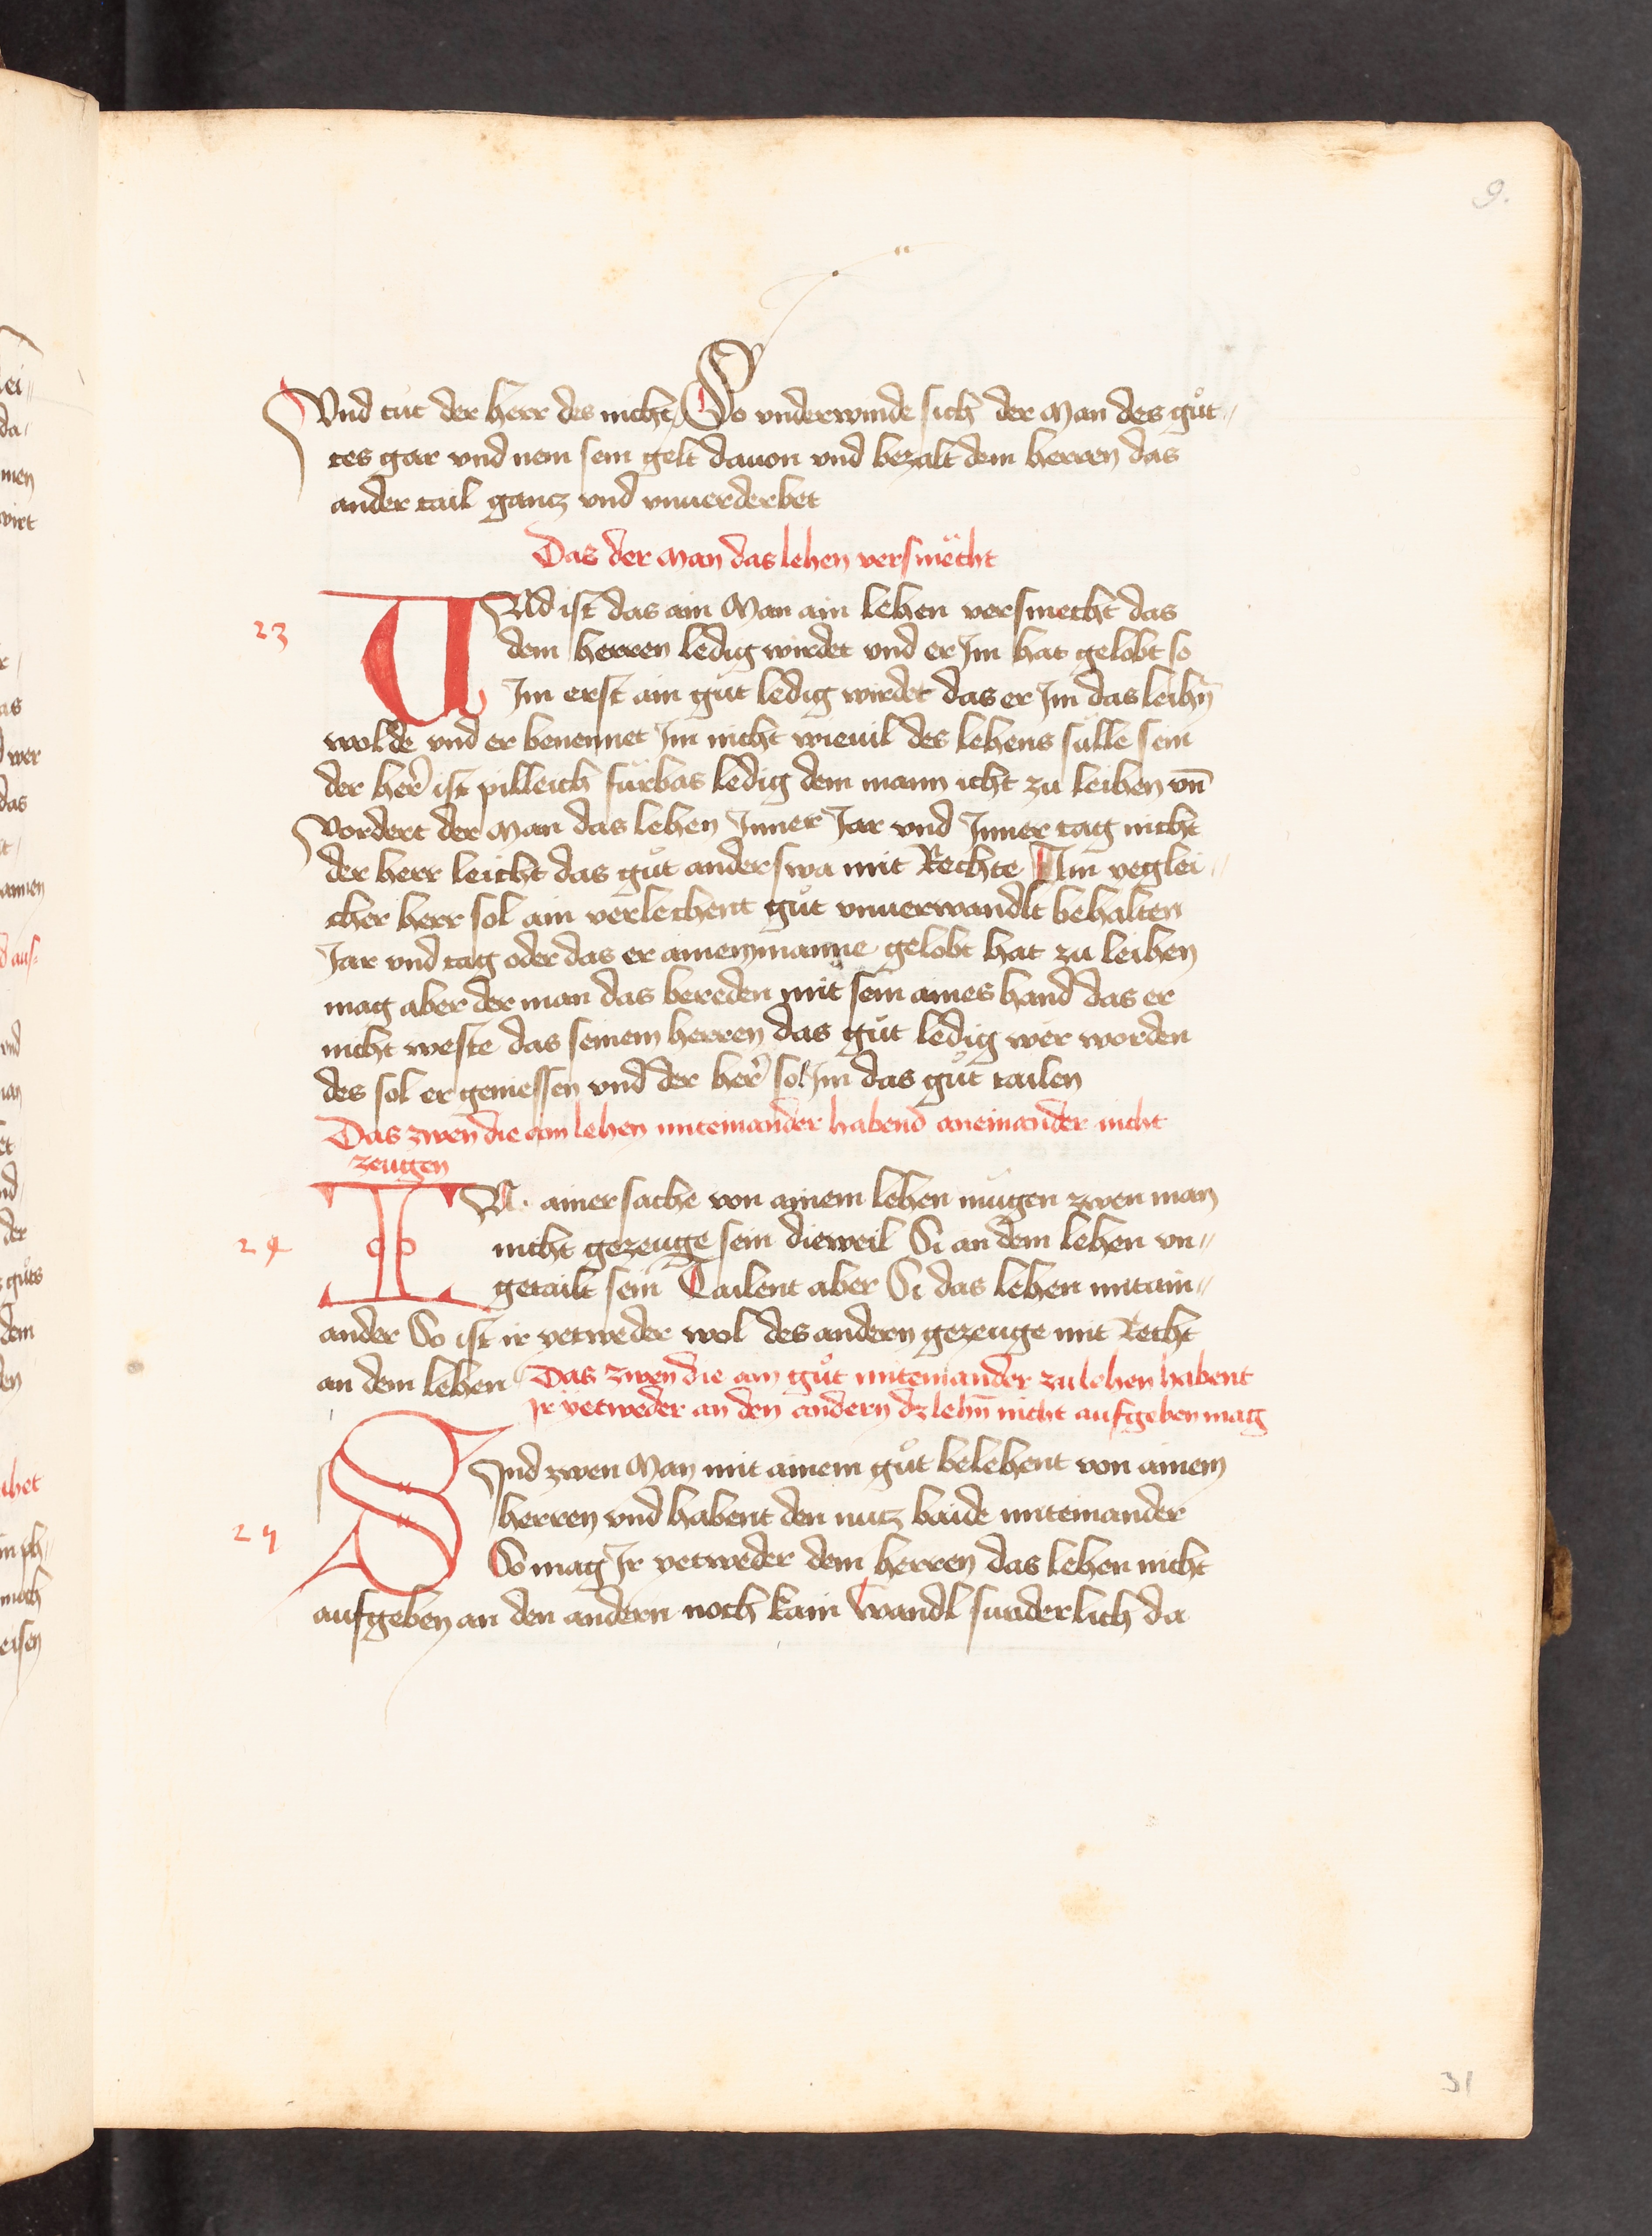 9.
Vnd tut der herr des nicht / So vnderwinde sich der Man des guͦt„
tes gar vnd nem sein gelt dauon vnd bezalt dem herren das
ander tail gancz vnd vnuerderbet
Das der Man das lehen versmëcht
23
VNd ist das ain Man ain lehen versmecht das
dem herren ledig wirdet vnd er Jm hat gelobt so
Jm erst ain guͦt ledig wirdet das er Jm das leihn̄
wolde vnd er benennet Jm nicht wieuil des lehens sülle sein
der her̄ ist pilleich fürbas ledig dem mann icht zu leihen vn̄
vordert der Man das lehen Jnner Jar vnd Jnner tag nicht
der herr leicht das guͦt anderswa mit Rechte Ain yeglei„
cher herr sol ain verlechent guͦt vnuerwandlt behalten
Jar vnd tag oder das er ainem manne gelobt hat zu leihen
mag aber der man das bereden mit sein aines hand das er
nicht weste das seinem herren das guͦt ledig wer worden
des sol er geniessen vnd der her̄ sol Jm das guͦt tailen
Das zwen die ain lehen miteinander habend aneinander nicht
zeugen
24
IN ainer sache von ainem lehen mugen zwen man
nicht gezeuge sein dieweil Si an dem lehen vn„
getailt sein Tailent aber Si das lehen mitain„
ander So ist ir yetweder wol des andern gezeuge mit Recht
an dem lehen
Das zwen die ain guͦt miteinander zu lehen habent
Jr yetweder an den andern dz lehn̄ nicht aufgeben mag
25
SInd zwen Man mit ainem guͦt belehent von ainem
herren vnd habent den nutz baide miteinander
So mag Jr yetweder dem herren das lehen nicht
aufgeben an den andern noch kain wandl sunderlich da
31